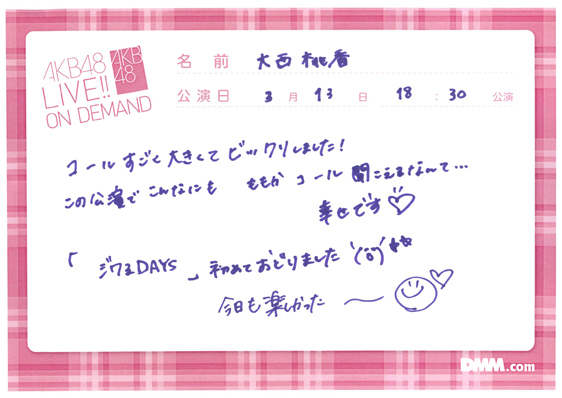 AKB48
LIVE!!
ON DEMAND
AKB
48
名前 大西桃香
公演日 3月13日 18:30 公演
コールすごく大きくてビックリしました!
この公演でこんなにも ももかコール聞こえるなんて…
幸せです♡
「ジワるDAYS」初めておどりました
今日も楽しかった〜
DMM.com